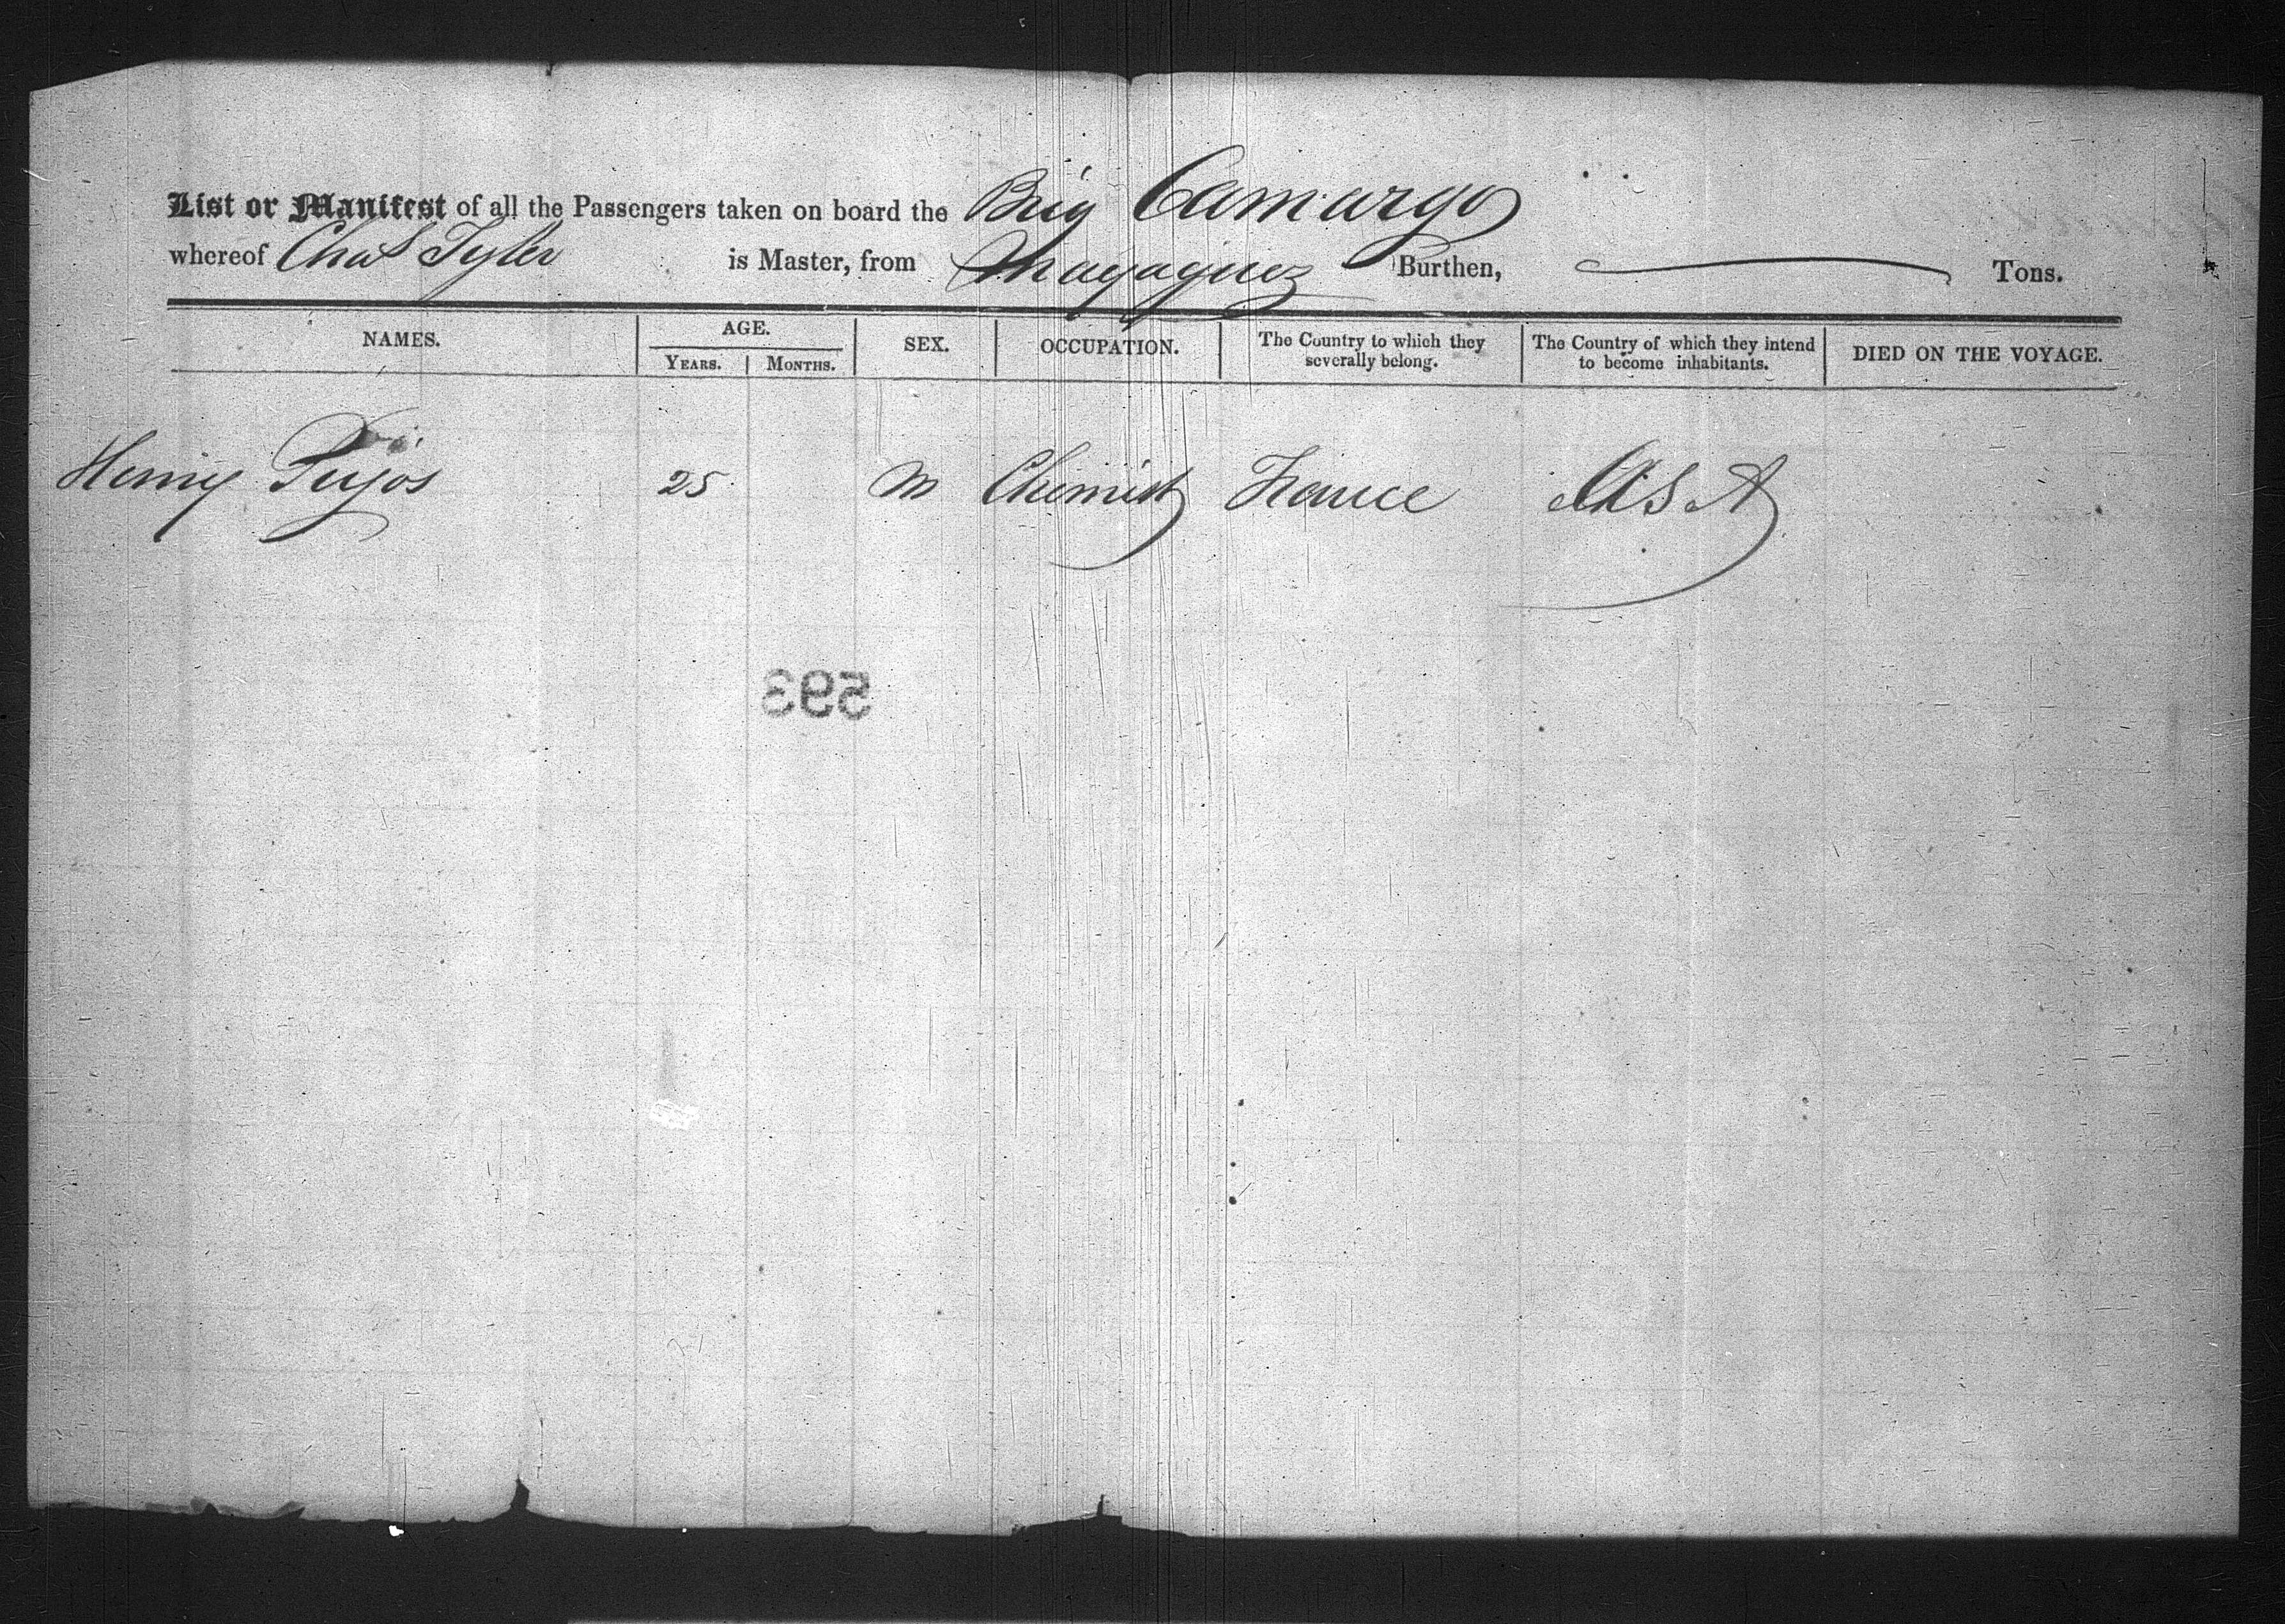 List or Manifest of all the Passengers taken on board the Brig Camargo
whereof Chas Tyler is Master, from Mayaguez Burthen, Tons.
NAMES. AGE. SEX. OCCUPATION. The Country to which they severally belong. The Country of which they intend to become inhabitants. DIED ON THE VOYAGE.
YEARS. MONTHS.
Henry Pujos 25 M Chemist France USA
593